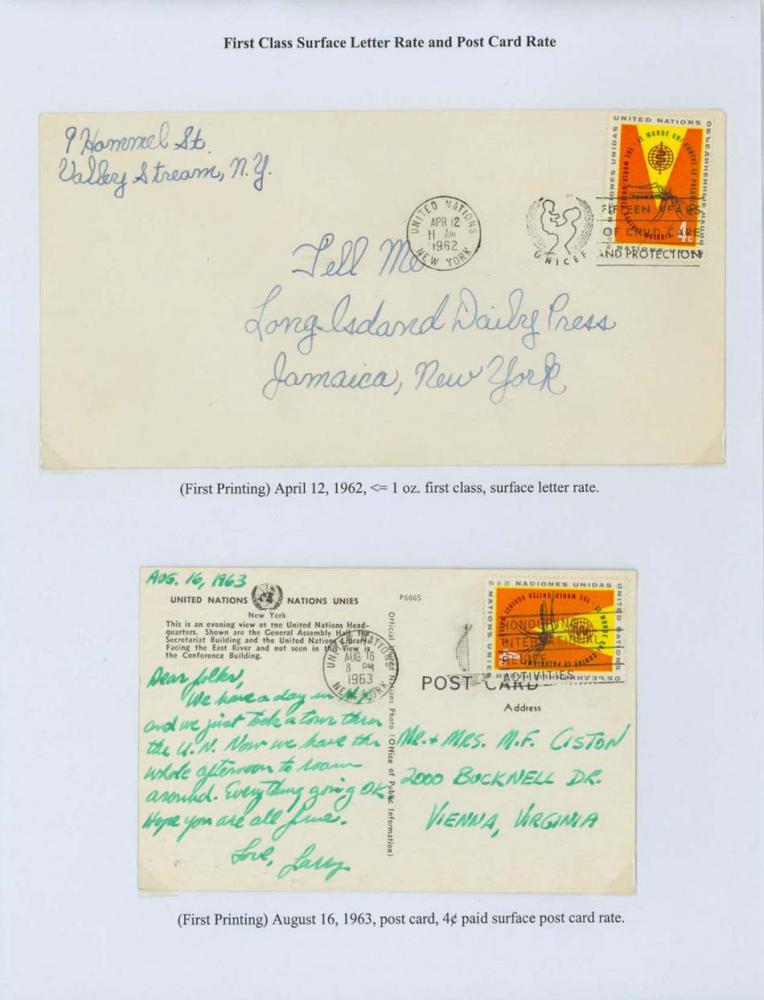 First Class Surface Letter Rate and Post Card Rate
9 Hammel St.
Valley Stream, N.Y.
UNITED NATIONS
NACIONES UNIDAS
THE WORLD UNITED AGAINST MALARIA
LE MONDE UNI CONTRE LE PALUDISME
4c
UNITED NATIONS
APR 12
11 AM
1962
NEW YORK
UNICEF
FIFTEEN YEARS
OF CHILD CARE
AND PROTECTION
Tell Me
Long Island Daily Press
Jamaica, New York
(First Printing) April 12, 1962, <= 1 oz. first class, surface letter rate.
AUG. 16, 1963
UNITED NATIONS NATIONS UNIES
New York
This is an evening view of the United Nations Head-
quarters. Shown are the General Assembly Hall, the
Secretariat Building and the United Nations Library.
Facing the East River and not seen in this view is
the Conference Building.
P6665
Official United Nations Photo (Office of Public Information)
UNITED NATIONS
AUG 16
8 PM
1963
NEW YORK
NACIONES UNIDAS
UNITED NATIONS
NATIONS UNIES
HONOURING
INTERNATIONAL
RELIEF
ACTIVITIES
POST CARD
Address
Dear folks,
We have a day in N.Y.
and we just took a tour thru
the U.N. Now we have the
whole afternoon to roam
around. Everything going OK
Hope you are all fine.
Love, Larry
MR. + MRS. M.F. CISTON
2000 BUCKNELL DR.
VIENNA, VIRGINIA
(First Printing) August 16, 1963, post card, 4¢ paid surface post card rate.